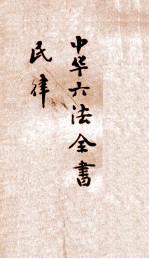 中华六法全書
民律